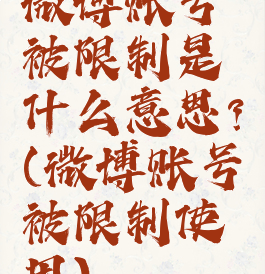 微博账号
被限制是
什么意思?
(微博账号
被限制使
用)